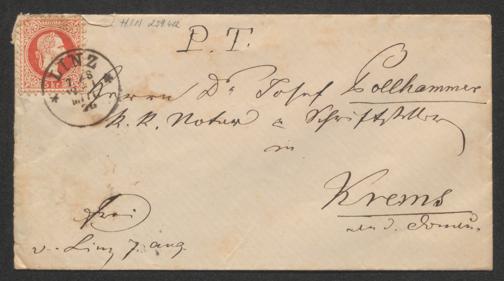 HIN 239.412
P. T.
LINZ
Herrn Dr Josef Pollhammer
k. k. Notar & Schriftsteller
in
Krems
an d. Donau.
frei
v. Linz 7. aug.